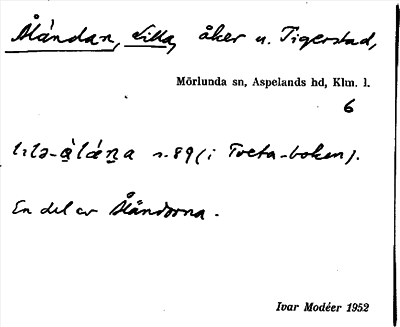 Åländan, Lilla, åker u. Tigerstad,
Mörlunda sn, Aspelands hd, Klm. l.
6
s. 89 (i Tveta-boken).
En del av Åländorna.
Ivar Modéer 1952